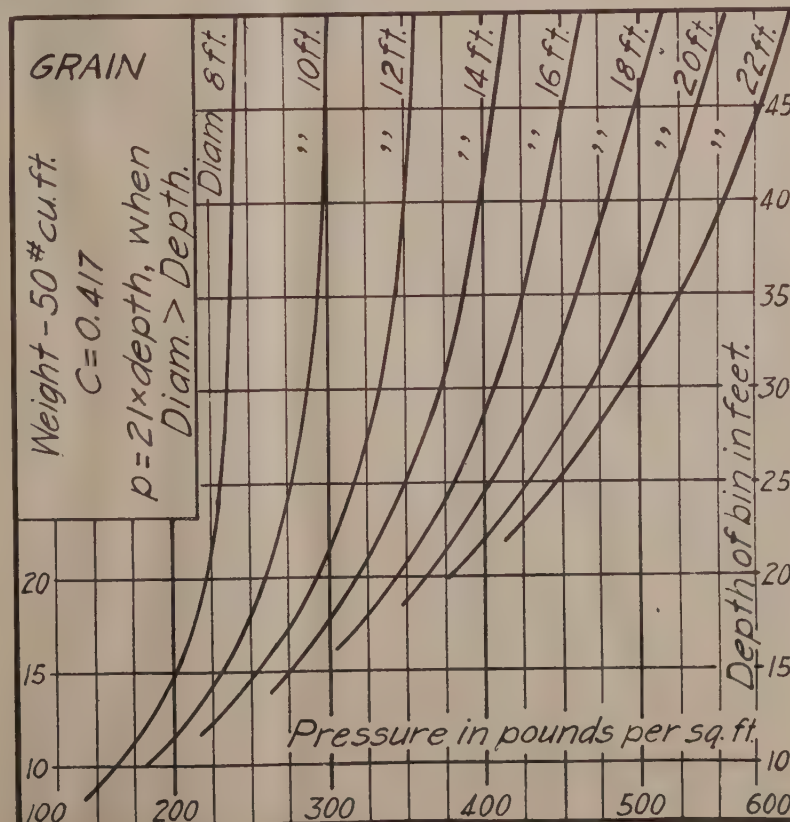 GRAIN
Weight - 50# cu.ft.
C=0.417
p=21×depth, when
Diam. > Depth.
Diam 8 ft.
,, 10 ft.
,, 12 ft.
,, 14 ft.
,, 16 ft.
,, 18 ft.
,, 20 ft.
,, 22 ft.
45
40
35
30
25
20
20
15
15
10
10
Depth of bin in feet.
Pressure in pounds per sq. ft.
100 200 300 400 500 600